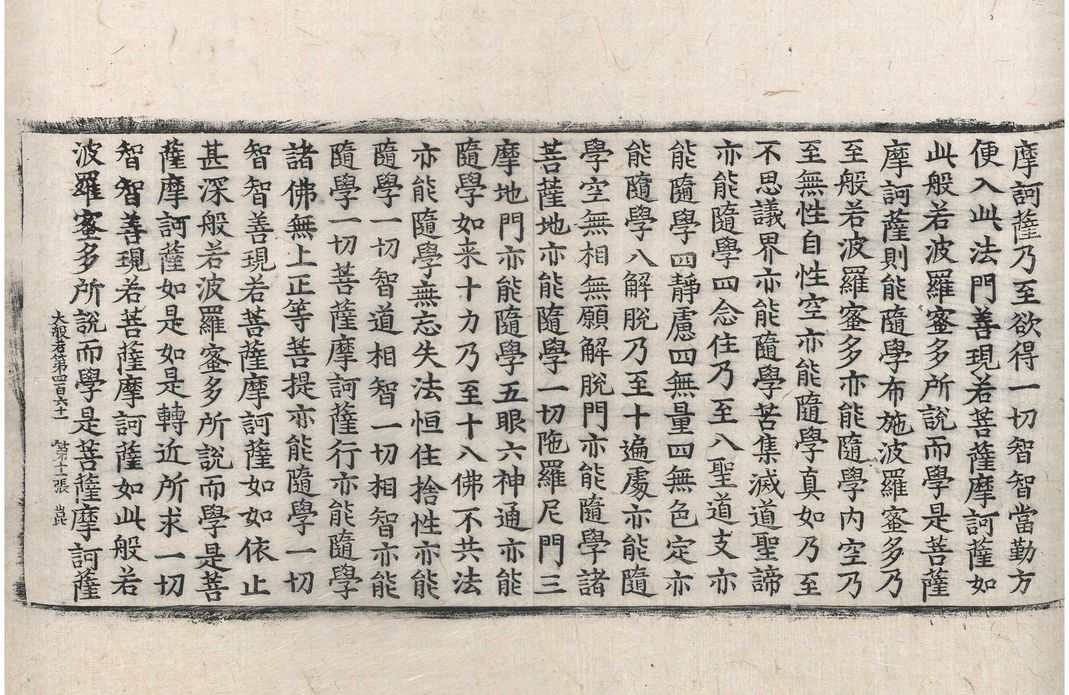 摩訶薩乃至欲得一切智智當勤方
便入此法門善現若菩薩摩訶薩如
此般若波羅蜜多所說而學是菩薩
摩訶薩則能隨學布施波羅蜜多乃
至般若波羅蜜多亦能隨學內空乃
至無性自性空亦能隨學真如乃至
不思議界亦能隨學苦集滅道聖諦
亦能隨學四念住乃至八聖道支亦
能隨學四靜慮四無量四無色定亦
能隨學八解脫乃至十遍處亦能隨
學空無相無願解脫門亦能隨學諸
菩薩地亦能隨學一切陁羅尼門三
摩地門亦能隨學五眼六神通亦能
隨學如来十力乃至十八佛不共法
亦能隨學無忘失法恒住捨性亦能
隨學一切智道相智一切相智亦能
隨學一切菩薩摩訶薩行亦能隨學
諸佛無上正等菩提亦能隨學一切
智智善現若菩薩摩訶薩如如依止
甚深般若波羅蜜多所說而學是菩
薩摩訶薩如是如是轉近所求一切
智智善現若菩薩摩訶薩如此般若
波羅蜜多所說而學是菩薩摩訶薩
大般若第四百六十一 第十張